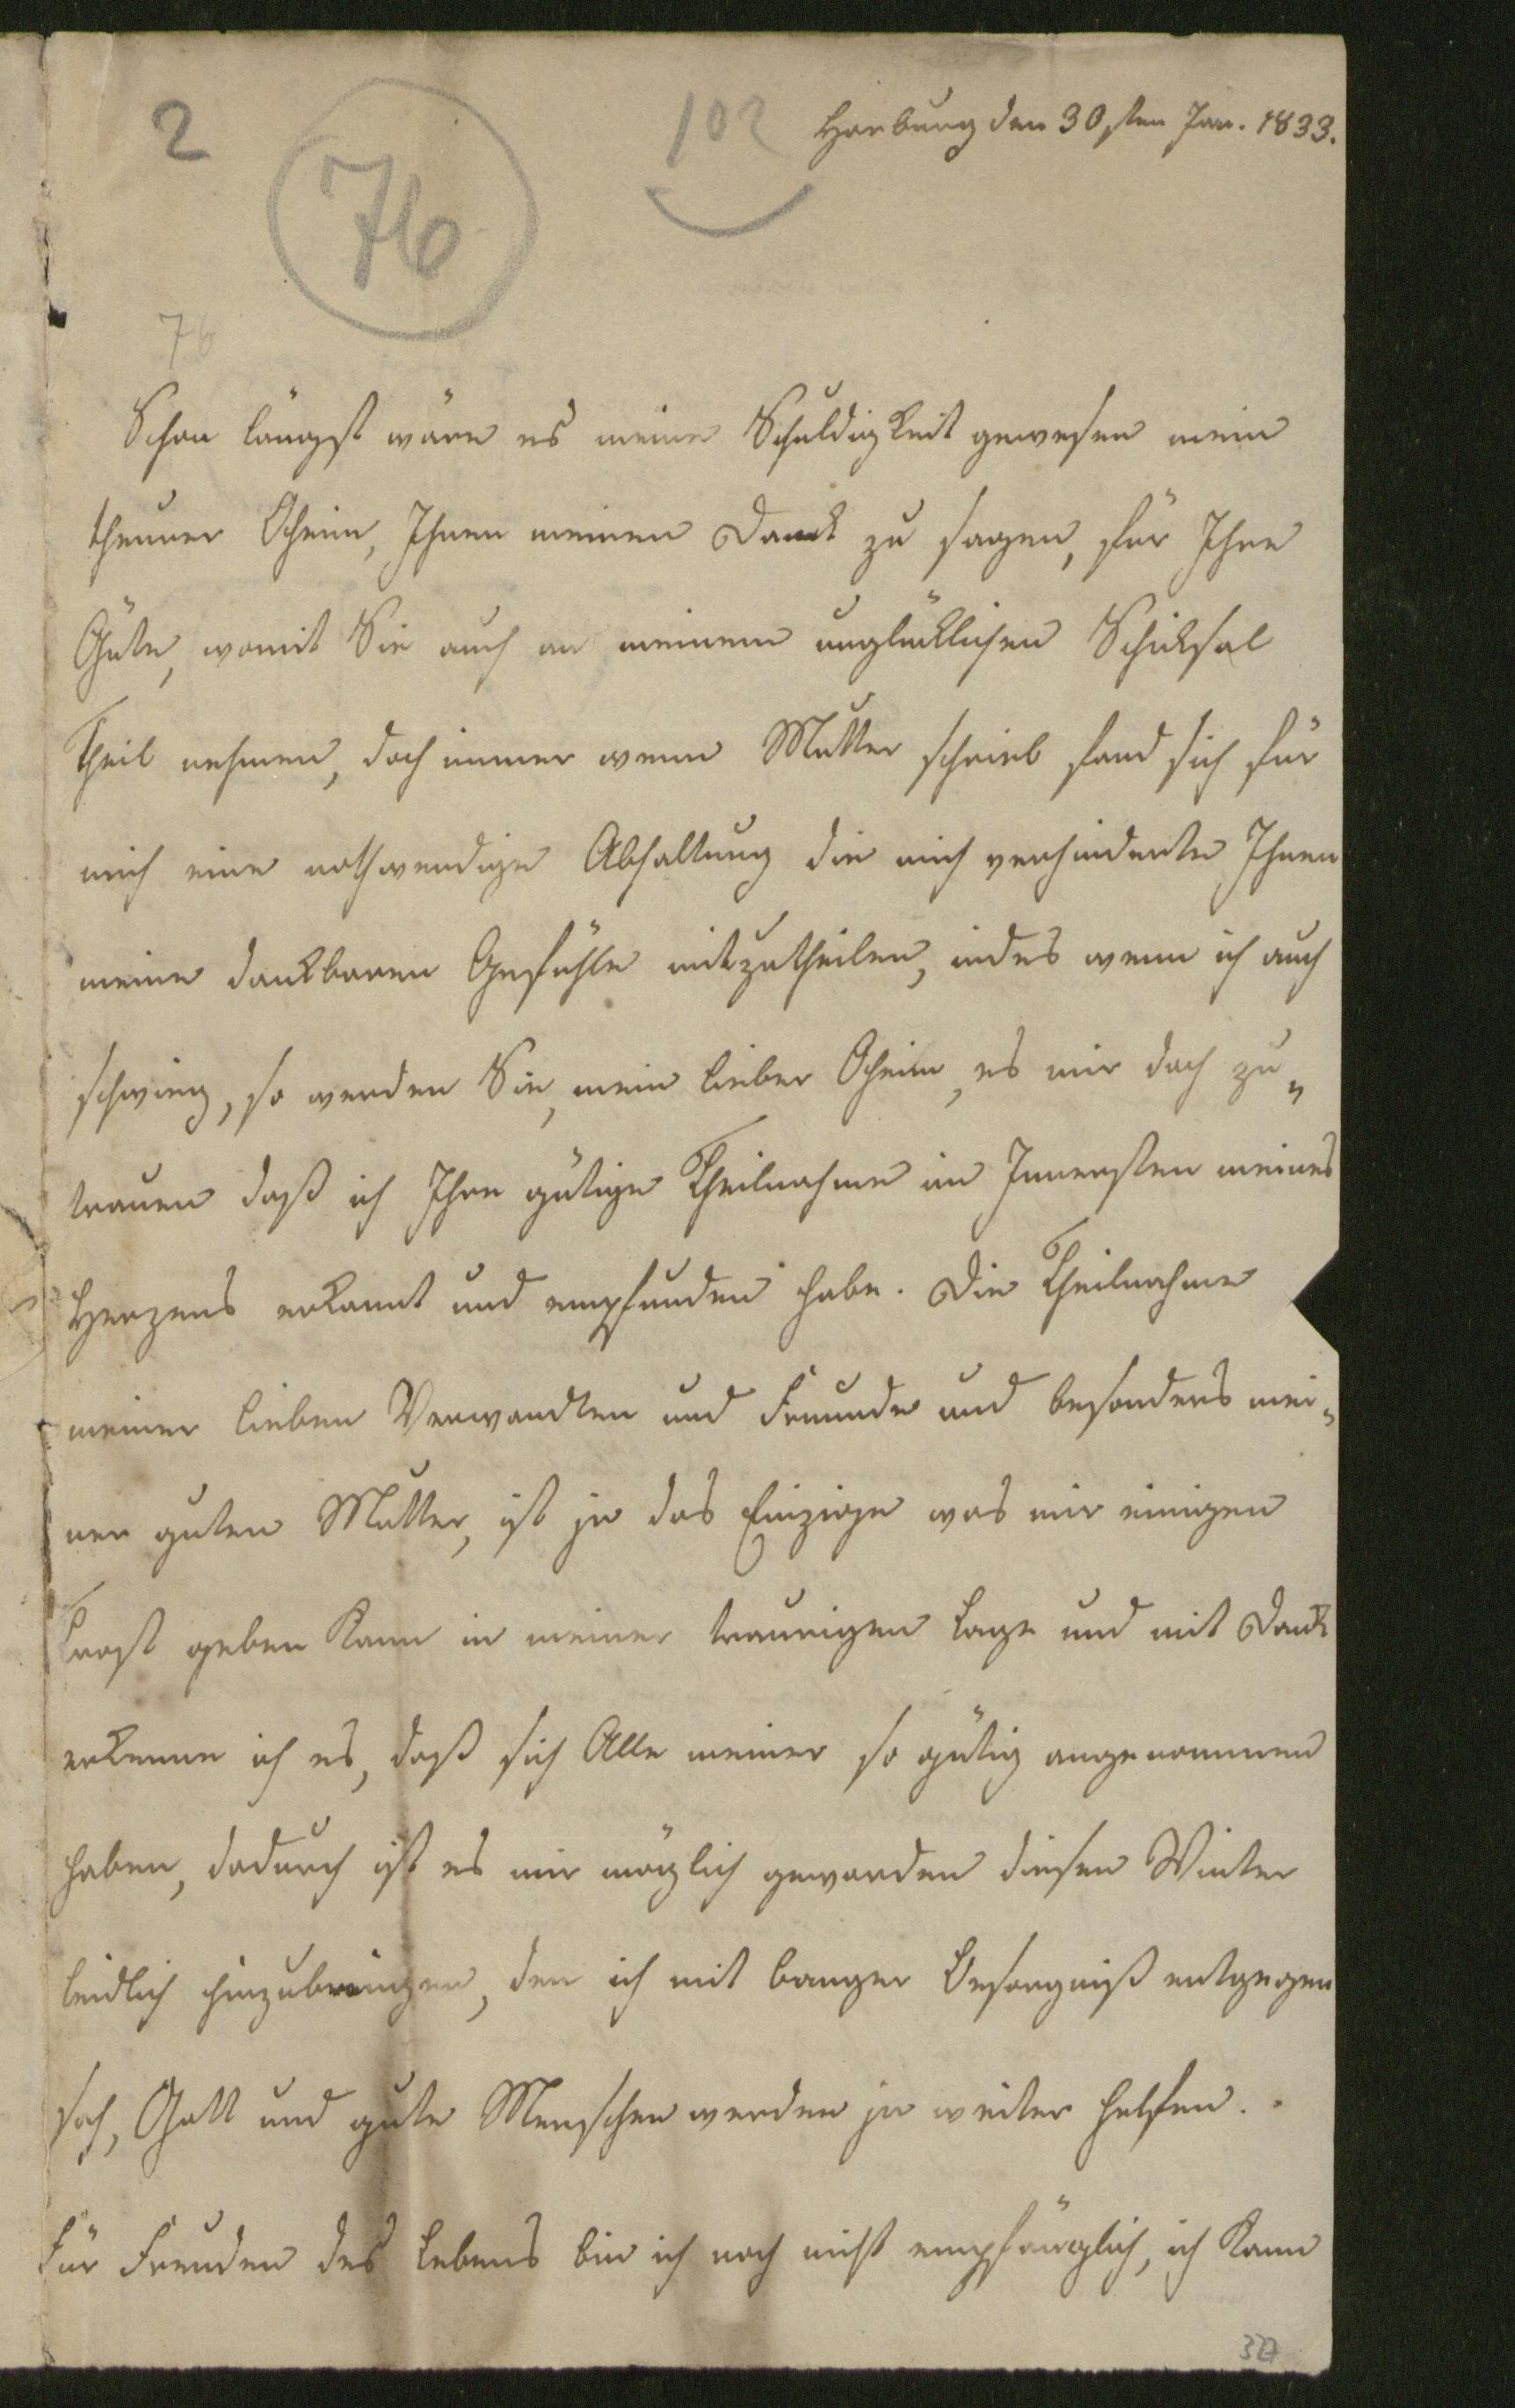 2
102
Harburg den 30sten Jan. 1833.
76
76
Schon längst wäre es meine Schuldigkeit gewesen mein
theurer Oheim, Ihnen meinen Dank zu sagen, für Ihre
Güte, womit Sie auch an meinem unglücklichen Schicksal
Theil nehmen, doch immer wenn Mutter schrieb fand sich für
mich eine nothwendige Abhaltung die mich verhinderte Ihnen
meine dankbaren Gefühle mitzutheilen, indes wenn ich auch
schwieg, so werden Sie, mein lieber Oheim, es mir doch zu„
trauen daß ich Ihre gütige Theilnahme im Innersten meines
Herzens erkannt und empfunden habe. Die Theilnahme
meiner lieben Verwandten und Freunde und besonders mei„
ner guten Mutter, ist ja das Einzige was mir einigen
Trost geben kann in meiner traurigen Lage und mit Dank
erkenne ich es, daß sich Alle meiner so gütig angenommen
haben, dadurch ist es mir möglich geworden diesen Winter
leidlich hinzubringen, den ich mit banger Besorgniß entgegen
sah, Gott und gute Menschen werden ja weiter helfen.
Für Freuden des Lebens bin ich noch nicht empfänglich, ich kann
327